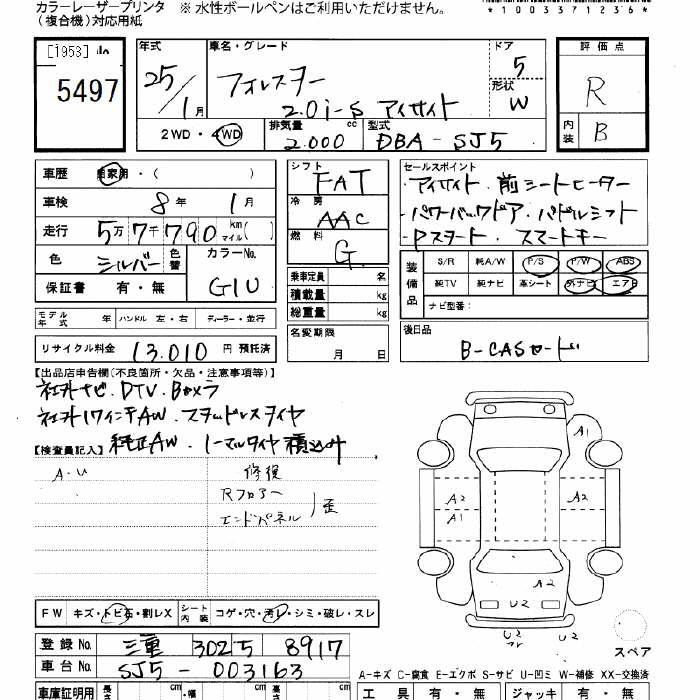 カラーレーザープリンタ ※水性ボールペンはご利用いただけません。
(複合機)対応用紙
*1003371236*
[1953]
5497
年式 車名・グレード ドア 評価点
25/1月 フォレスター 5 R
2.0i-S アイサイト 形状 W
2WD・4WD 排気量 2.000 cc 型式 DBA-SJ5 内装 B
車歴 自家用・( )
車検 8年 1月
走行 5万7千790 km マイル( )
色 シルバー 色替 カラーNo. G1U
保証書 有・無
シフト FAT
冷房 AAC
燃料 G
乗車定員 名
積載量 kg
総重量 kg
セールスポイント
・アイサイト・前シートヒーター
・パワーバックドア・パドルシフト
・Pスタート・スマートキー
装備品 S/R 純A/W P/S P/W ABS
純TV 純ナビ 革シート 外ナビ エアB
ナビ型番:
モデル年式 年 ハンドル 左・右 ディーラー・並行
名変期限 月 日
後日品
B-CASカード
リサイクル料金 13,010円 預託済
【出品店申告欄(不良箇所・欠品・注意事項等)】
社外ナビ.DTV.Bカメラ
社外17インチAW.スタッドレスタイヤ
【検査員記入】 純正AW.ノーマルタイヤ積込み
A・U 修復
Rフロアー
エンドパネル 歪
A1
A2 A2
A1
A2
U2 U2
U2
スペア
FW キズ・トビ石・割レX シート内装 コゲ・穴・汚レ・シミ・破レ・スレ
登録No. 三重 302 ち 8917
車台No. SJ5-003163
A-キズ C-腐食 E-エクボ S-サビ U-凹ミ W-補修 XX-交換済
車庫証明用 長さ cm ・幅 cm 高さ cm
工具 有・無 ジャッキ 有・無